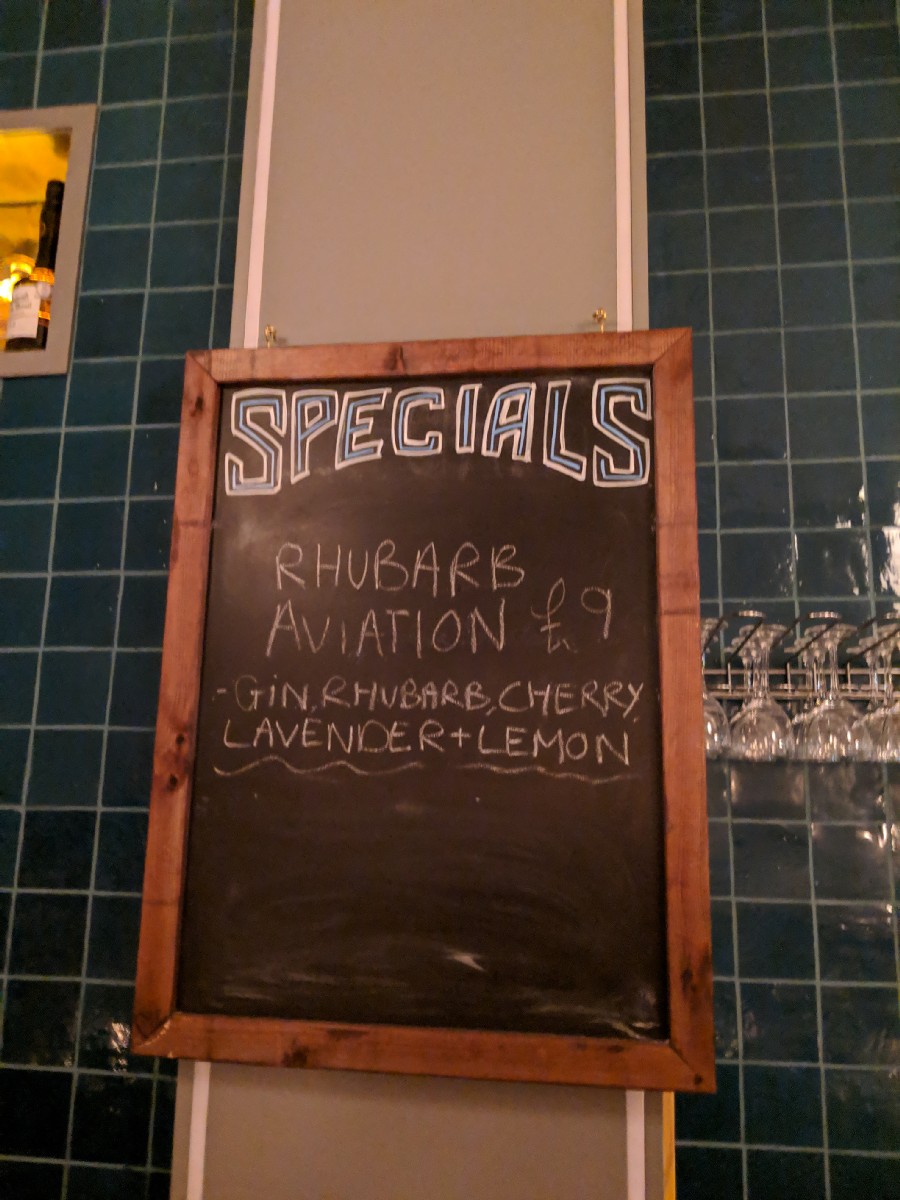 SPECIALS
RHUBARB
AVIATION £9
-GIN, RHUBARB, CHERRY,
LAVENDER + LEMON